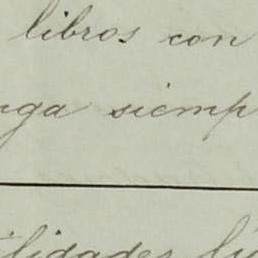 libros con
nga siemp
ilidades